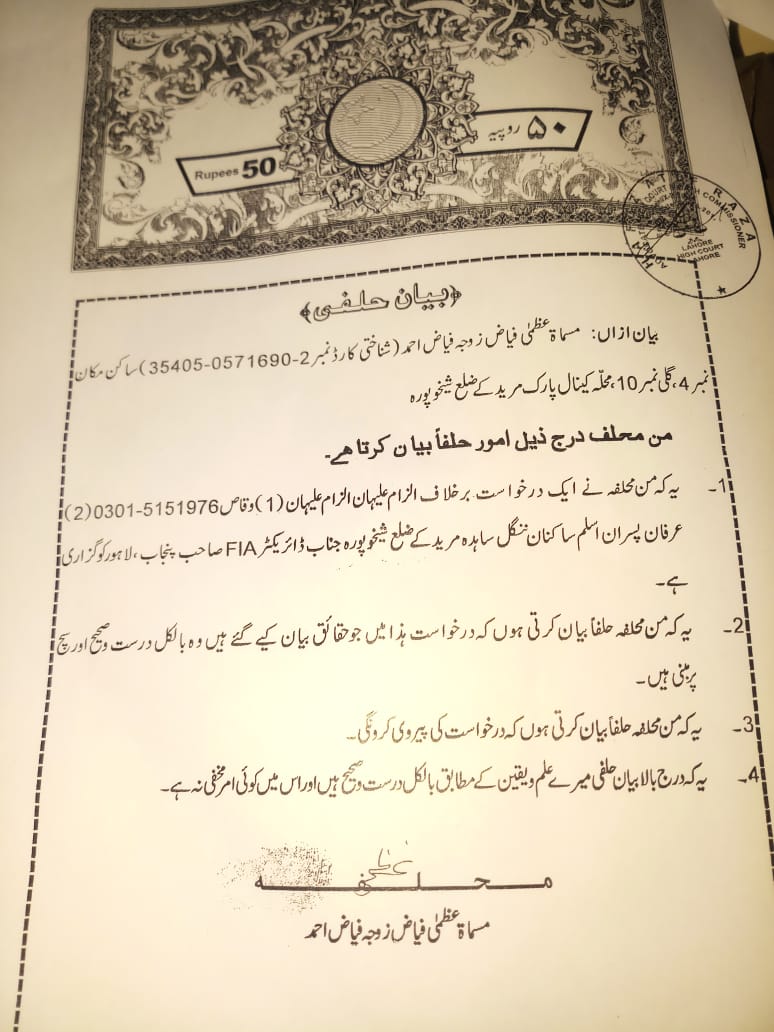 ۵۰ روپیہ
Rupees 50
RAZA
COURT
COMMISSIONER
LAHORE
HIGH COURT
LAHORE
﴿بیان حلفی﴾
بیان ازاں: مسماۃ عظمٰی فیاض زوجہ فیاض احمد (شناختی کارڈ نمبر 2-0571690-35405) ساکن مکان
نمبر 4، گلی نمبر 10، محلہ کینال پارک مریدکے ضلع شیخوپورہ
من محلف درج ذیل امور حلفاً بیان کرتا ہے۔
1۔ یہ کہ من محلفہ نے ایک درخواست برخلاف الزام علیہان الزام علیہان (1) وقاص 0301-5151976 (2)
عرفان پسران اسلم ساکنان ننگل ساہدہ مریدکے ضلع شیخوپورہ جناب ڈائریکٹر FIA صاحب پنجاب، لاہور کو گزاری
ہے۔
2۔ یہ کہ من محلفہ حلفاً بیان کرتی ہوں کہ درخواست ہذا میں جو حقائق بیان کیے گئے ہیں وہ بالکل درست و صحیح اور سچ
پر مبنی ہیں۔
3۔ یہ کہ من محلفہ حلفاً بیان کرتی ہوں کہ درخواست کی پیروی کرونگی۔
4۔ یہ کہ درج بالا بیان حلفی میرے علم و یقین کے مطابق بالکل درست و صحیح ہیں اور اس میں کوئی امر مخفی نہ ہے۔
عظمی
محلفہ
مسماۃ عظمٰی فیاض زوجہ فیاض احمد